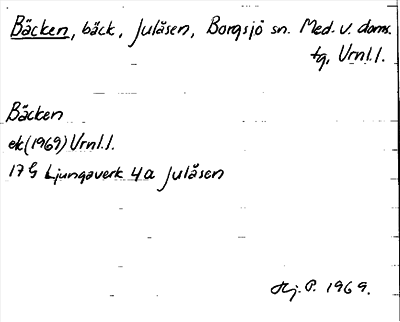 Bäcken, bäck, Julåsen, Borgsjö sn. Med. v. doms.
tg, Vrnl. l.
Bäcken
ek (1969) Vrnl. l.
17 G Ljungaverk 4a Julåsen
Hj. P. 1969.